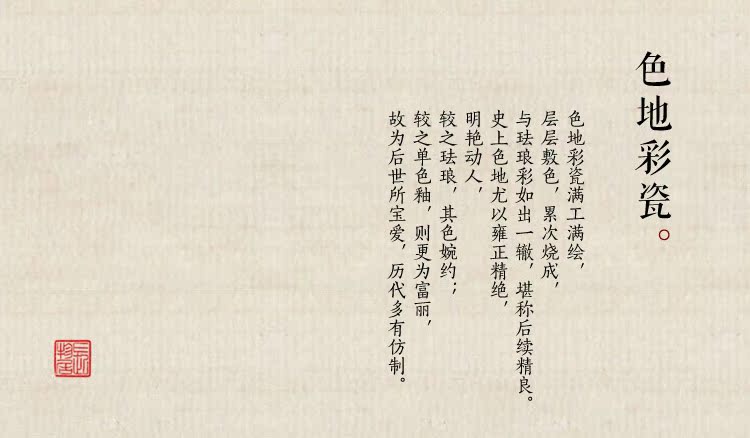 色地彩瓷。
色地彩瓷满工满绘，
层层敷色，累次烧成，
与珐琅彩如出一辙，堪称后续精良。
史上色地尤以雍正精绝，
明艳动人，
较之珐琅，其色婉约；
较之单色釉，则更为富丽，
故为后世所宝爱，历代多有仿制。